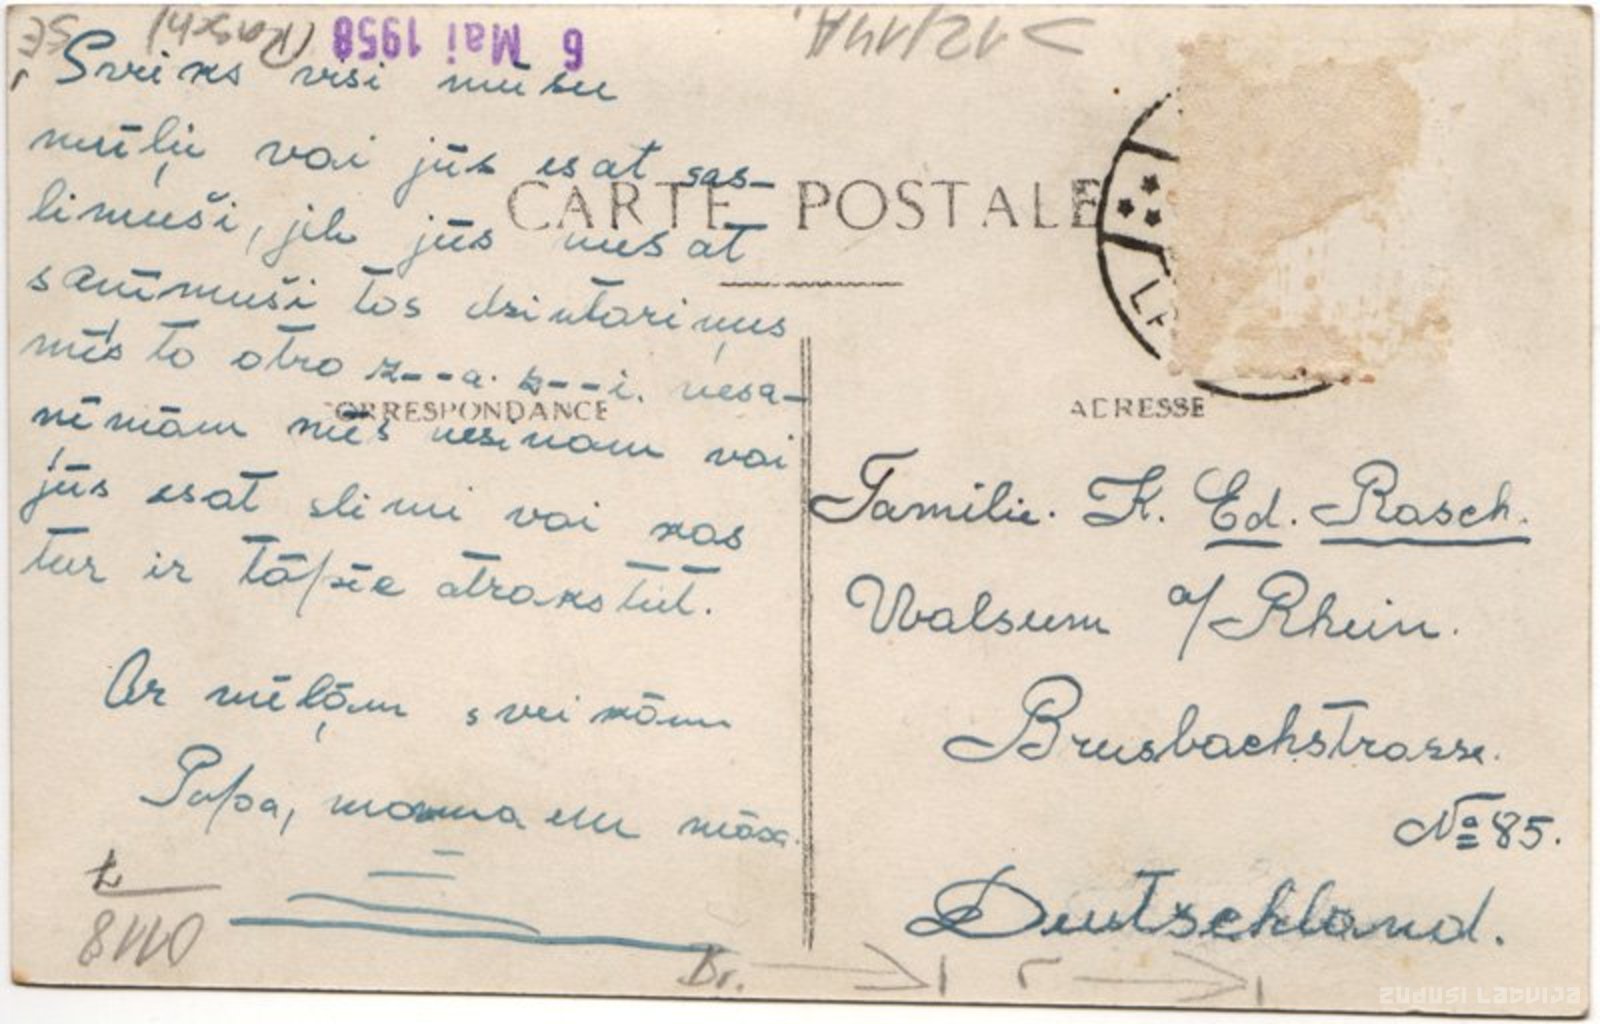 12/144.
6 Mai 1958
(Rasch)
Sveiks visi mūsu
mīļie vai jūs esat sas-
limuši, jeb jūs neesat
saņēmuši tos dzintariņus
mēs to otro z--a. z--i. nesa-
ņēmām mēs nezinam vai
jūs esat slimi vai kas
tur ir tāpēc atrakstiet.
Ar mīļām sveikām
Papa, mamma un māsa.
8110
Br.
CARTE POSTALE
CORRESPONDANCE
ADRESSE
Familie. K. Ed. Rasch.
Walsum a/Rhein.
Brusbachstrasse.
No 85.
Deutschland.
ZUDUSI LATVIJA